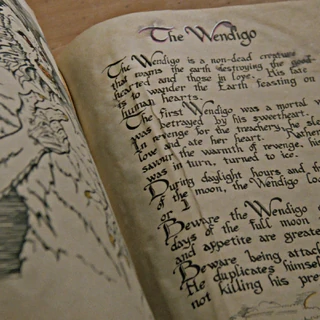 The Wendigo
The Wendigo is a non-dead creature
that roams the earth destroying the good-
hearted and those in love. His fate
is to wander the Earth feasting on
human hearts.
The first Wendigo was a mortal
was betrayed by his sweetheart.
In revenge for the treachery, he
love and ate her heart. Rather
savour the warmth of revenge, his
was in turn, turned to ice.
During daylight hours and
of the moon, the Wendigo
or
Beware the Wendigo
days of the full moon
and appetite are
Beware being
He duplicates himself
not killing his